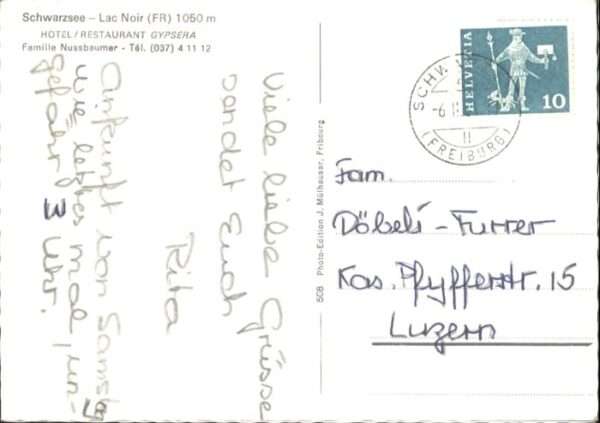 Schwarzsee – Lac Noir (FR) 1050 m
HOTEL/RESTAURANT GYPSERA
Familie Nussbaumer - Tél. (037) 4 11 12
Viele liebe Grüsse
sendet Euch
Rita
Ankunft von Samstag
wie letztes mal, un-
gefähr 3 Uhr.
508 Photo-Edition J. Mülhauser, Fribourg
HELVETIA
10
-6
II
(FREIBURG)
Fam.
Döbeli-Furrer
Kas. Pfyfferstr. 15
Luzern